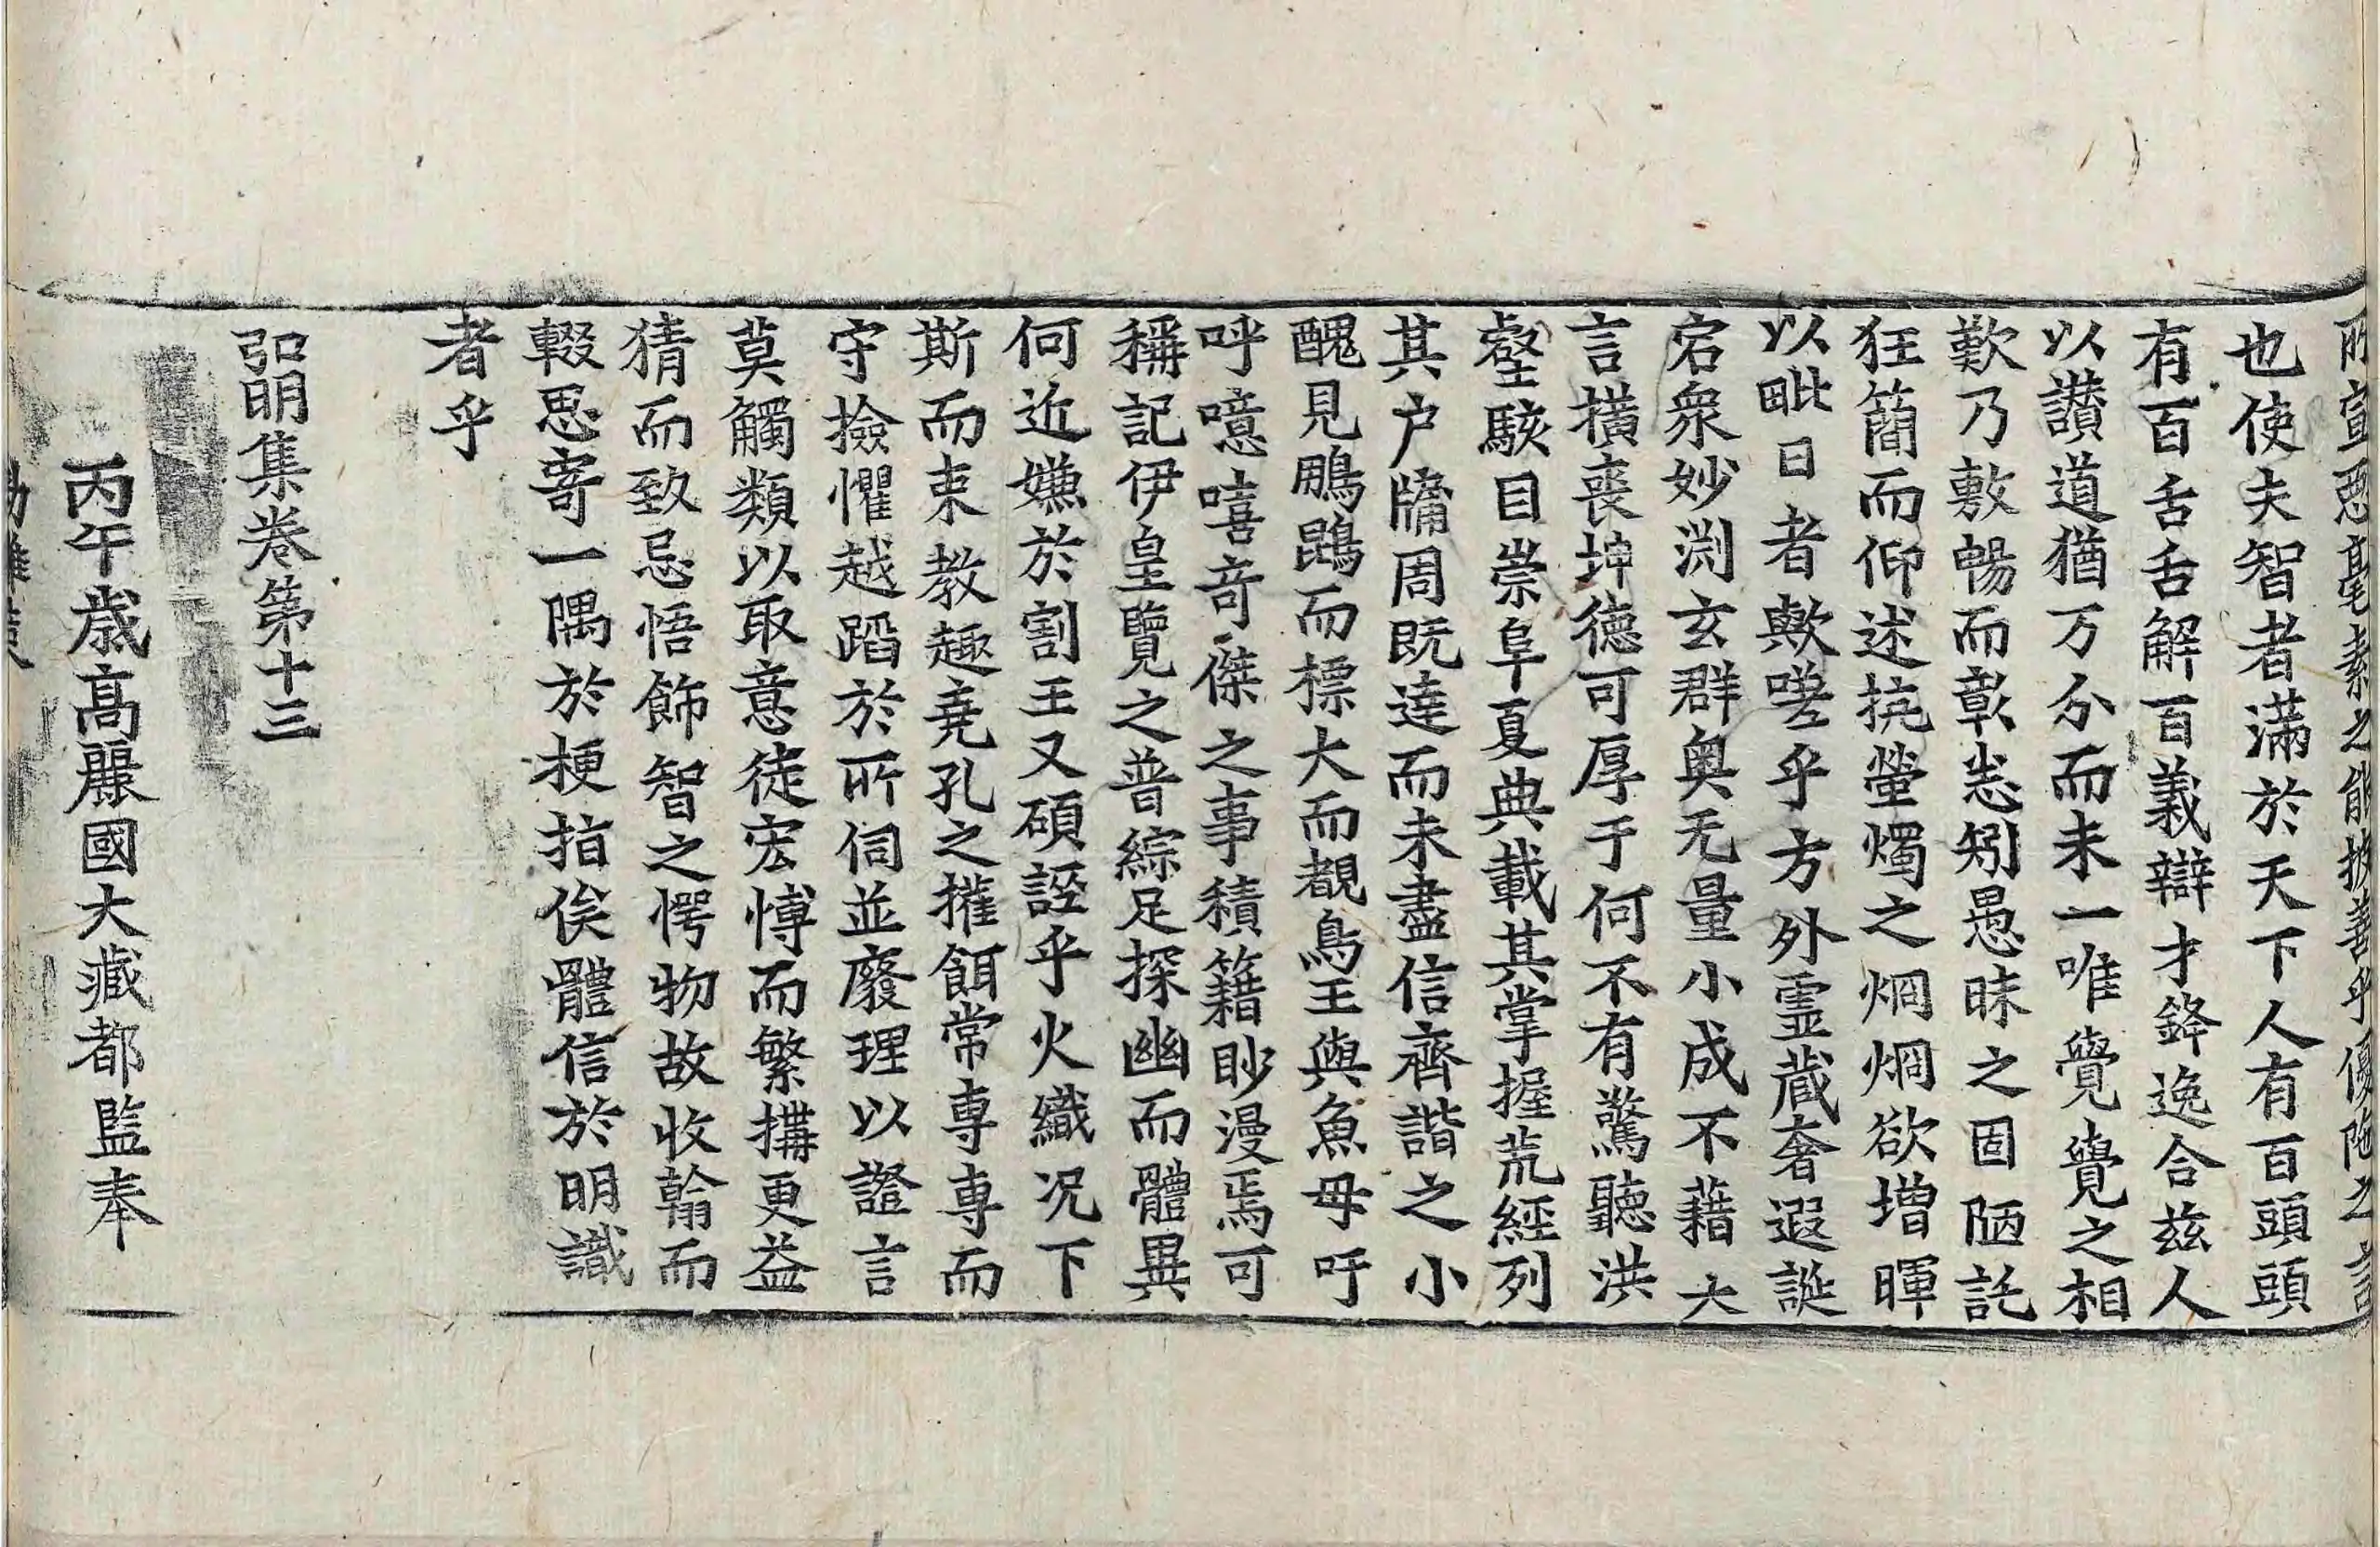 所宣惡毫素之能披善乎優陁之言
也使夫智者滿於天下人有百頭頭
有百舌舌解百義辯才鋒逸合茲人
以讃道猶万分而未一唯覺覺之相
歎乃敷暢而彰悊矧愚昧之固陋託
狂簡而仰述抗螢燭之烱烱欲增暉
以毗日者歟嗟乎方外靈藏奢遐誕
宕衆妙淵玄群奥无量小成不藉大
言橫喪坤德可厚于何不有驚聽洪
壑駭目崇阜夏典載其掌握荒經列
其户牖周既達而未盡信齊諧之小
醜見鵬鵾而標大而覩鳥王與魚母吁
呼噫嘻奇傑之事積籍眇漫焉可
稱記伊皇覽之普綜足探幽而體異
何近嫌於割玉又碩誣乎火織况下
斯而束教趣堯孔之搉餌常專專而
守撿懼越蹈於所伺並廢理以證言
莫觸類以取意徒宏博而繁搆更益
猜而致忌悟飾智之愕物故收翰而
輟思寄一隅於梗指俟體信於明識
者乎
弘明集卷第十三
丙午歳高麗國大藏都監奉